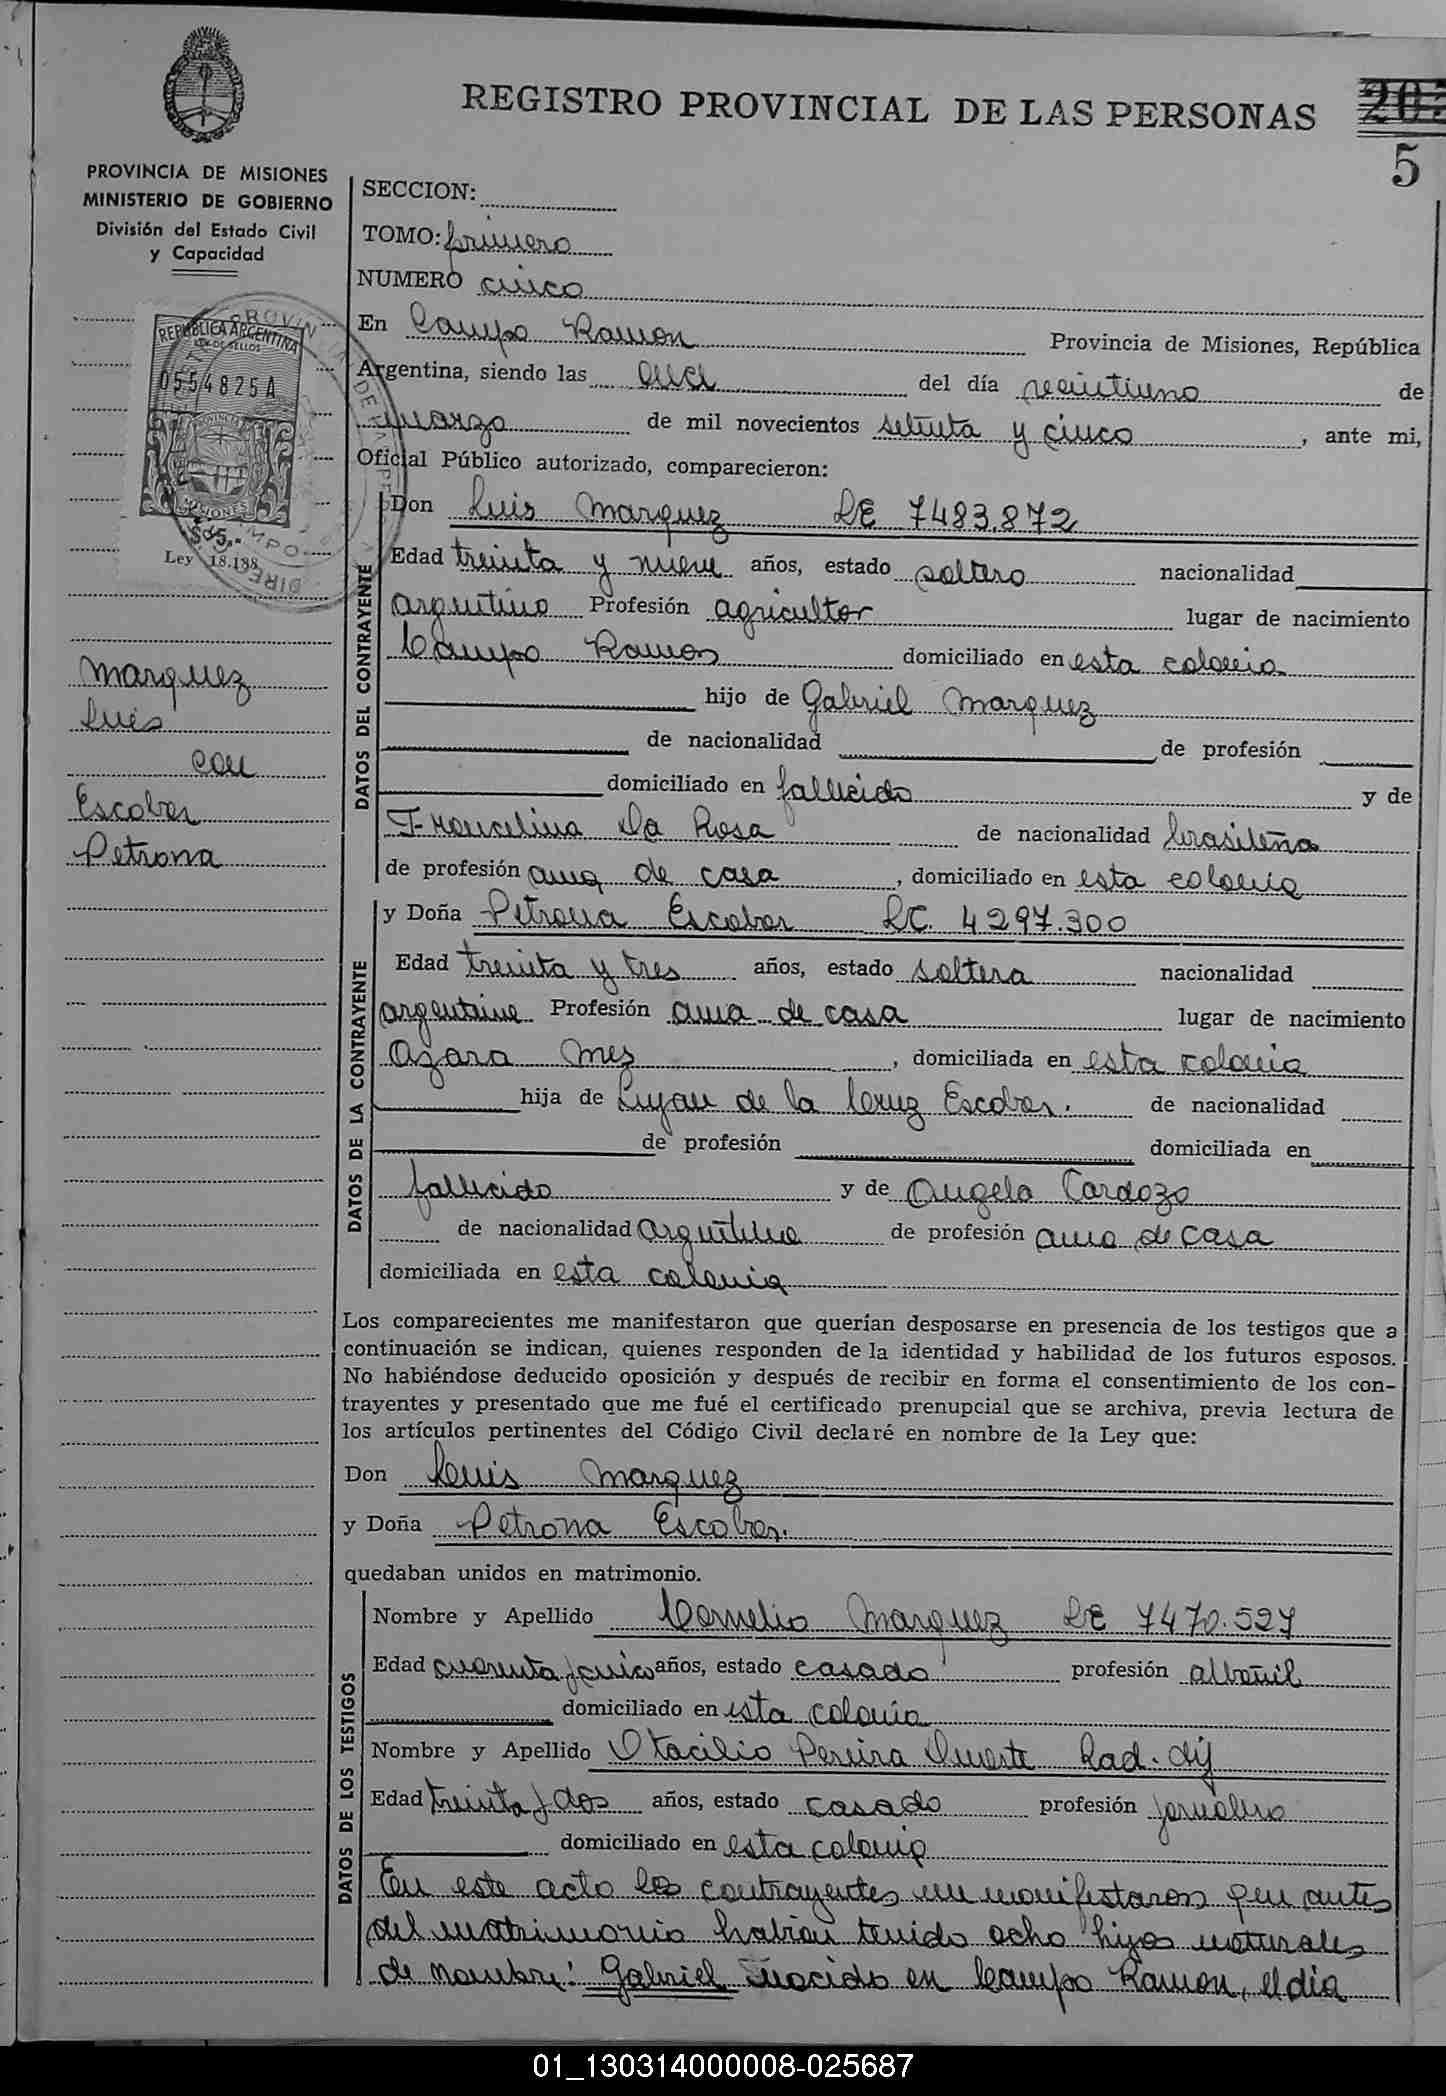 REGISTRO PROVINCIAL DE LAS PERSONAS
5
PROVINCIA DE MISIONES
MINISTERIO DE GOBIERNO
División del Estado Civil
y Capacidad
SECCION:
TOMO: primero
NUMERO cinco
En Campo Ramon Provincia de Misiones, República
Argentina, siendo las diez del día veintiuno de
marzo de mil novecientos setenta y cinco, ante mi,
Oficial Público autorizado, comparecieron:
REPUBLICA ARGENTINA
LEY DE SELLOS
0554825A
MISIONES
Ley 18.188
Marquez
Luis
con
Escobar
Petrona
DATOS DEL CONTRAYENTE
Don Luis Marquez LE 7483.872
Edad treinta y nueve años, estado soltero nacionalidad
argentino Profesión agricultor lugar de nacimiento
Campo Ramon domiciliado en esta colonia
hijo de Gabriel Marquez
de nacionalidad de profesión
domiciliado en fallecido y de
Francelina Da Rosa de nacionalidad brasileña
de profesión ama de casa, domiciliado en esta colonia
DATOS DE LA CONTRAYENTE
y Doña Petrona Escobar LC. 4297.300
Edad treinta y tres años, estado soltera nacionalidad
argentina Profesión ama de casa lugar de nacimiento
Azara Mnes, domiciliada en esta colonia
hija de Lujan de la Cruz Escobar. de nacionalidad
de profesión domiciliada en
fallecido y de Angela Cardozo
de nacionalidad argentina de profesión ama de casa
domiciliada en esta colonia
Los comparecientes me manifestaron que querían desposarse en presencia de los testigos que a
continuación se indican, quienes responden de la identidad y habilidad de los futuros esposos.
No habiéndose deducido oposición y después de recibir en forma el consentimiento de los con-
trayentes y presentado que me fué el certificado prenupcial que se archiva, previa lectura de
los artículos pertinentes del Código Civil declaré en nombre de la Ley que:
Don Luis Marquez
y Doña Petrona Escobar.
quedaban unidos en matrimonio.
DATOS DE LOS TESTIGOS
Nombre y Apellido Cornelio Marquez LE 7470.527
Edad cuarenta y cinco años, estado casado profesión albañil
domiciliado en esta colonia
Nombre y Apellido Otacilio Pereira Duarte Rad.
Edad treinta y dos años, estado casado profesión jornalero
domiciliado en esta colonia
En este acto los contrayentes me manifestaron que antes
del matrimonio habian tenido ocho hijos naturales
de nombre: Gabriel nacido en Campo Ramon, el dia
01_130314000008-025687